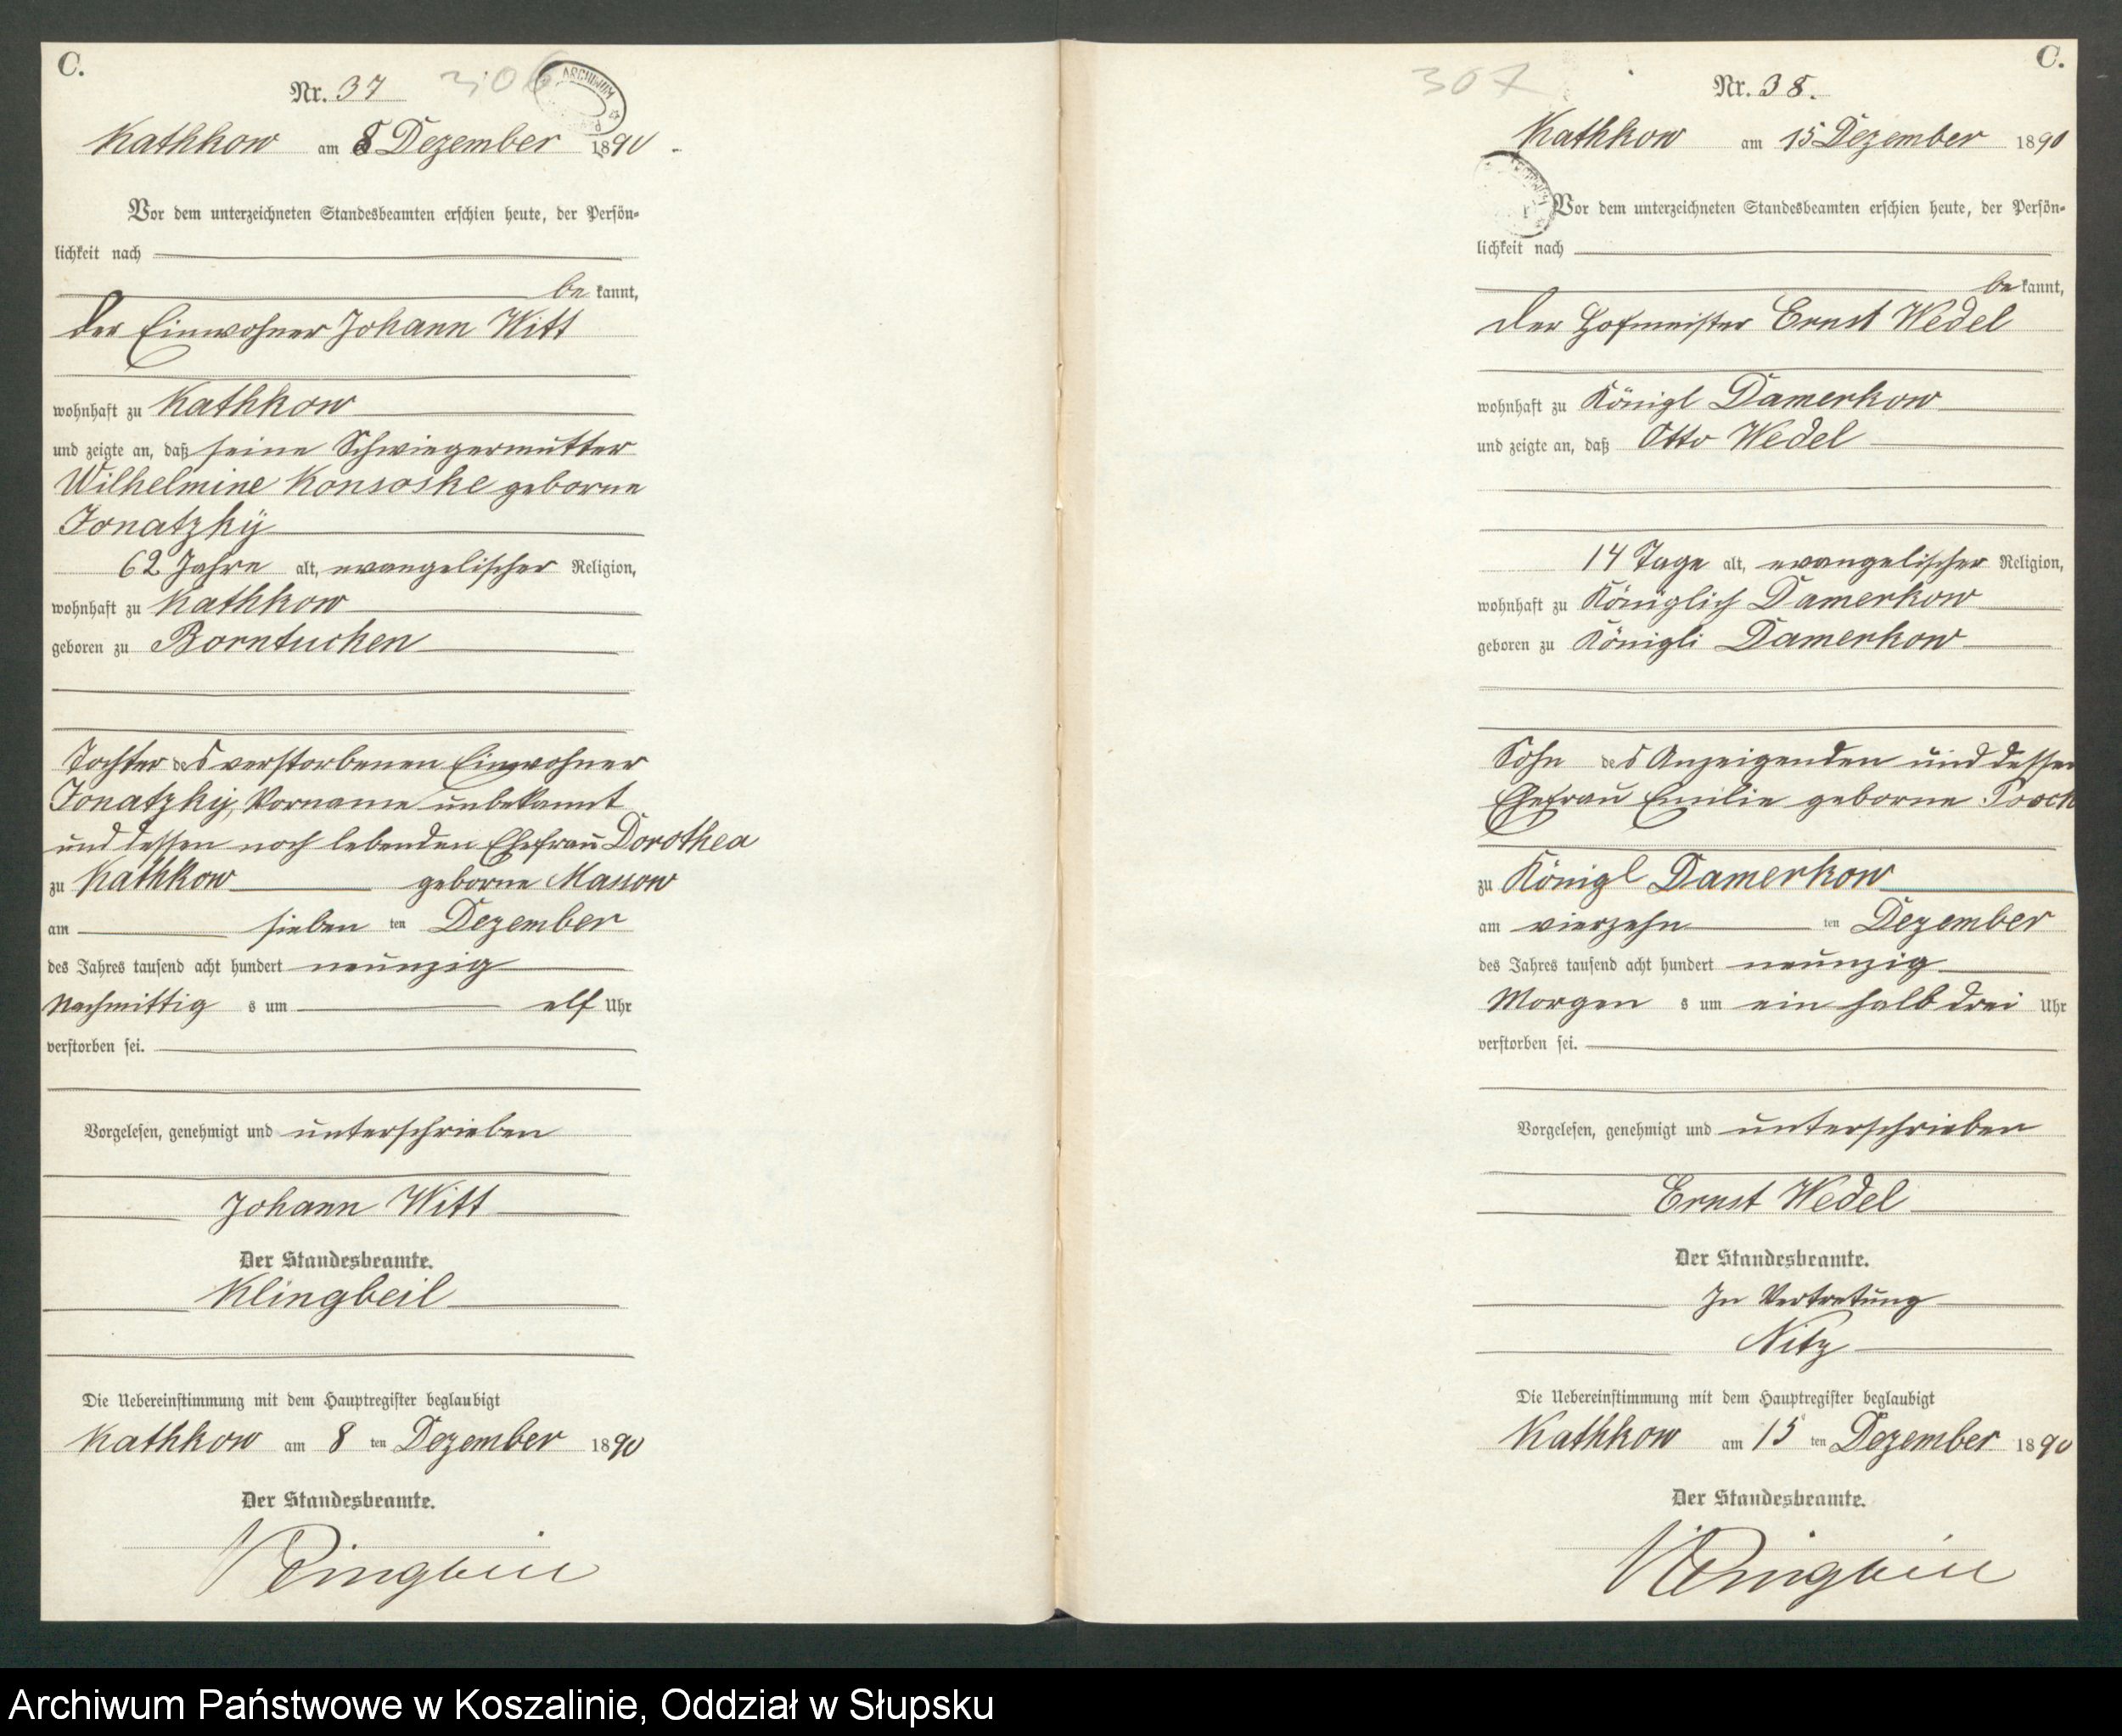 C.
Nr. 37
306
ARCHIWUM
Kathkow am 8 Dezember 1890
Vor dem unterzeichneten Standesbeamten erschien heute, der Persön-
lichkeit nach
be kannt,
der Einwohner Johann Witt
wohnhaft zu Kathkow
und zeigte an, daß seine Schwiegermutter
Wilhelmine Konsoske geborne
Jonatzky
62 Jahre alt, evangelischer Religion,
wohnhaft zu Kathkow
geboren zu Borntuchen
Tochter des verstorbenen Einwohner
Jonatzky, Vorname unbekannt
und dessen noch lebenden Ehefrau Dorothea
zu Kathkow geborne Massow
am sieben ten Dezember
des Jahres tausend acht hundert neunzig
Nachmittig s um elf Uhr
verstorben sei.
Vorgelesen, genehmigt und unterschrieben
Johann Witt
Der Standesbeamte.
Klingbeil
Die Uebereinstimmung mit dem Hauptregister beglaubigt
Kathkow am 8 ten Dezember 1890
Der Standesbeamte.
Klingbeil
C.
307
Nr. 38.
Kathkow am 15 Dezember 1890
Vor dem unterzeichneten Standesbeamten erschien heute, der Persön-
lichkeit nach
be kannt,
der Hofmeister Ernst Wedel
wohnhaft zu Königl Damerkow
und zeigte an, daß Otto Wedel
14 Tage alt, evangelischer Religion,
wohnhaft zu Königlich Damerkow
geboren zu Königli Damerkow
Sohn des Anzeigenden und dessen
Ehefrau Emilie geborne
zu Königl Damerkow
am vierzehn ten Dezember
des Jahres tausend acht hundert neunzig
Morgen s um ein halb drei Uhr
verstorben sei.
Vorgelesen, genehmigt und unterschrieben
Ernst Wedel
Der Standesbeamte.
In Vertretung
Nitz
Die Uebereinstimmung mit dem Hauptregister beglaubigt
Kathkow am 15 ten Dezember 1890
Der Standesbeamte.
Klingbeil
Archiwum Państwowe w Koszalinie, Oddział w Słupsku